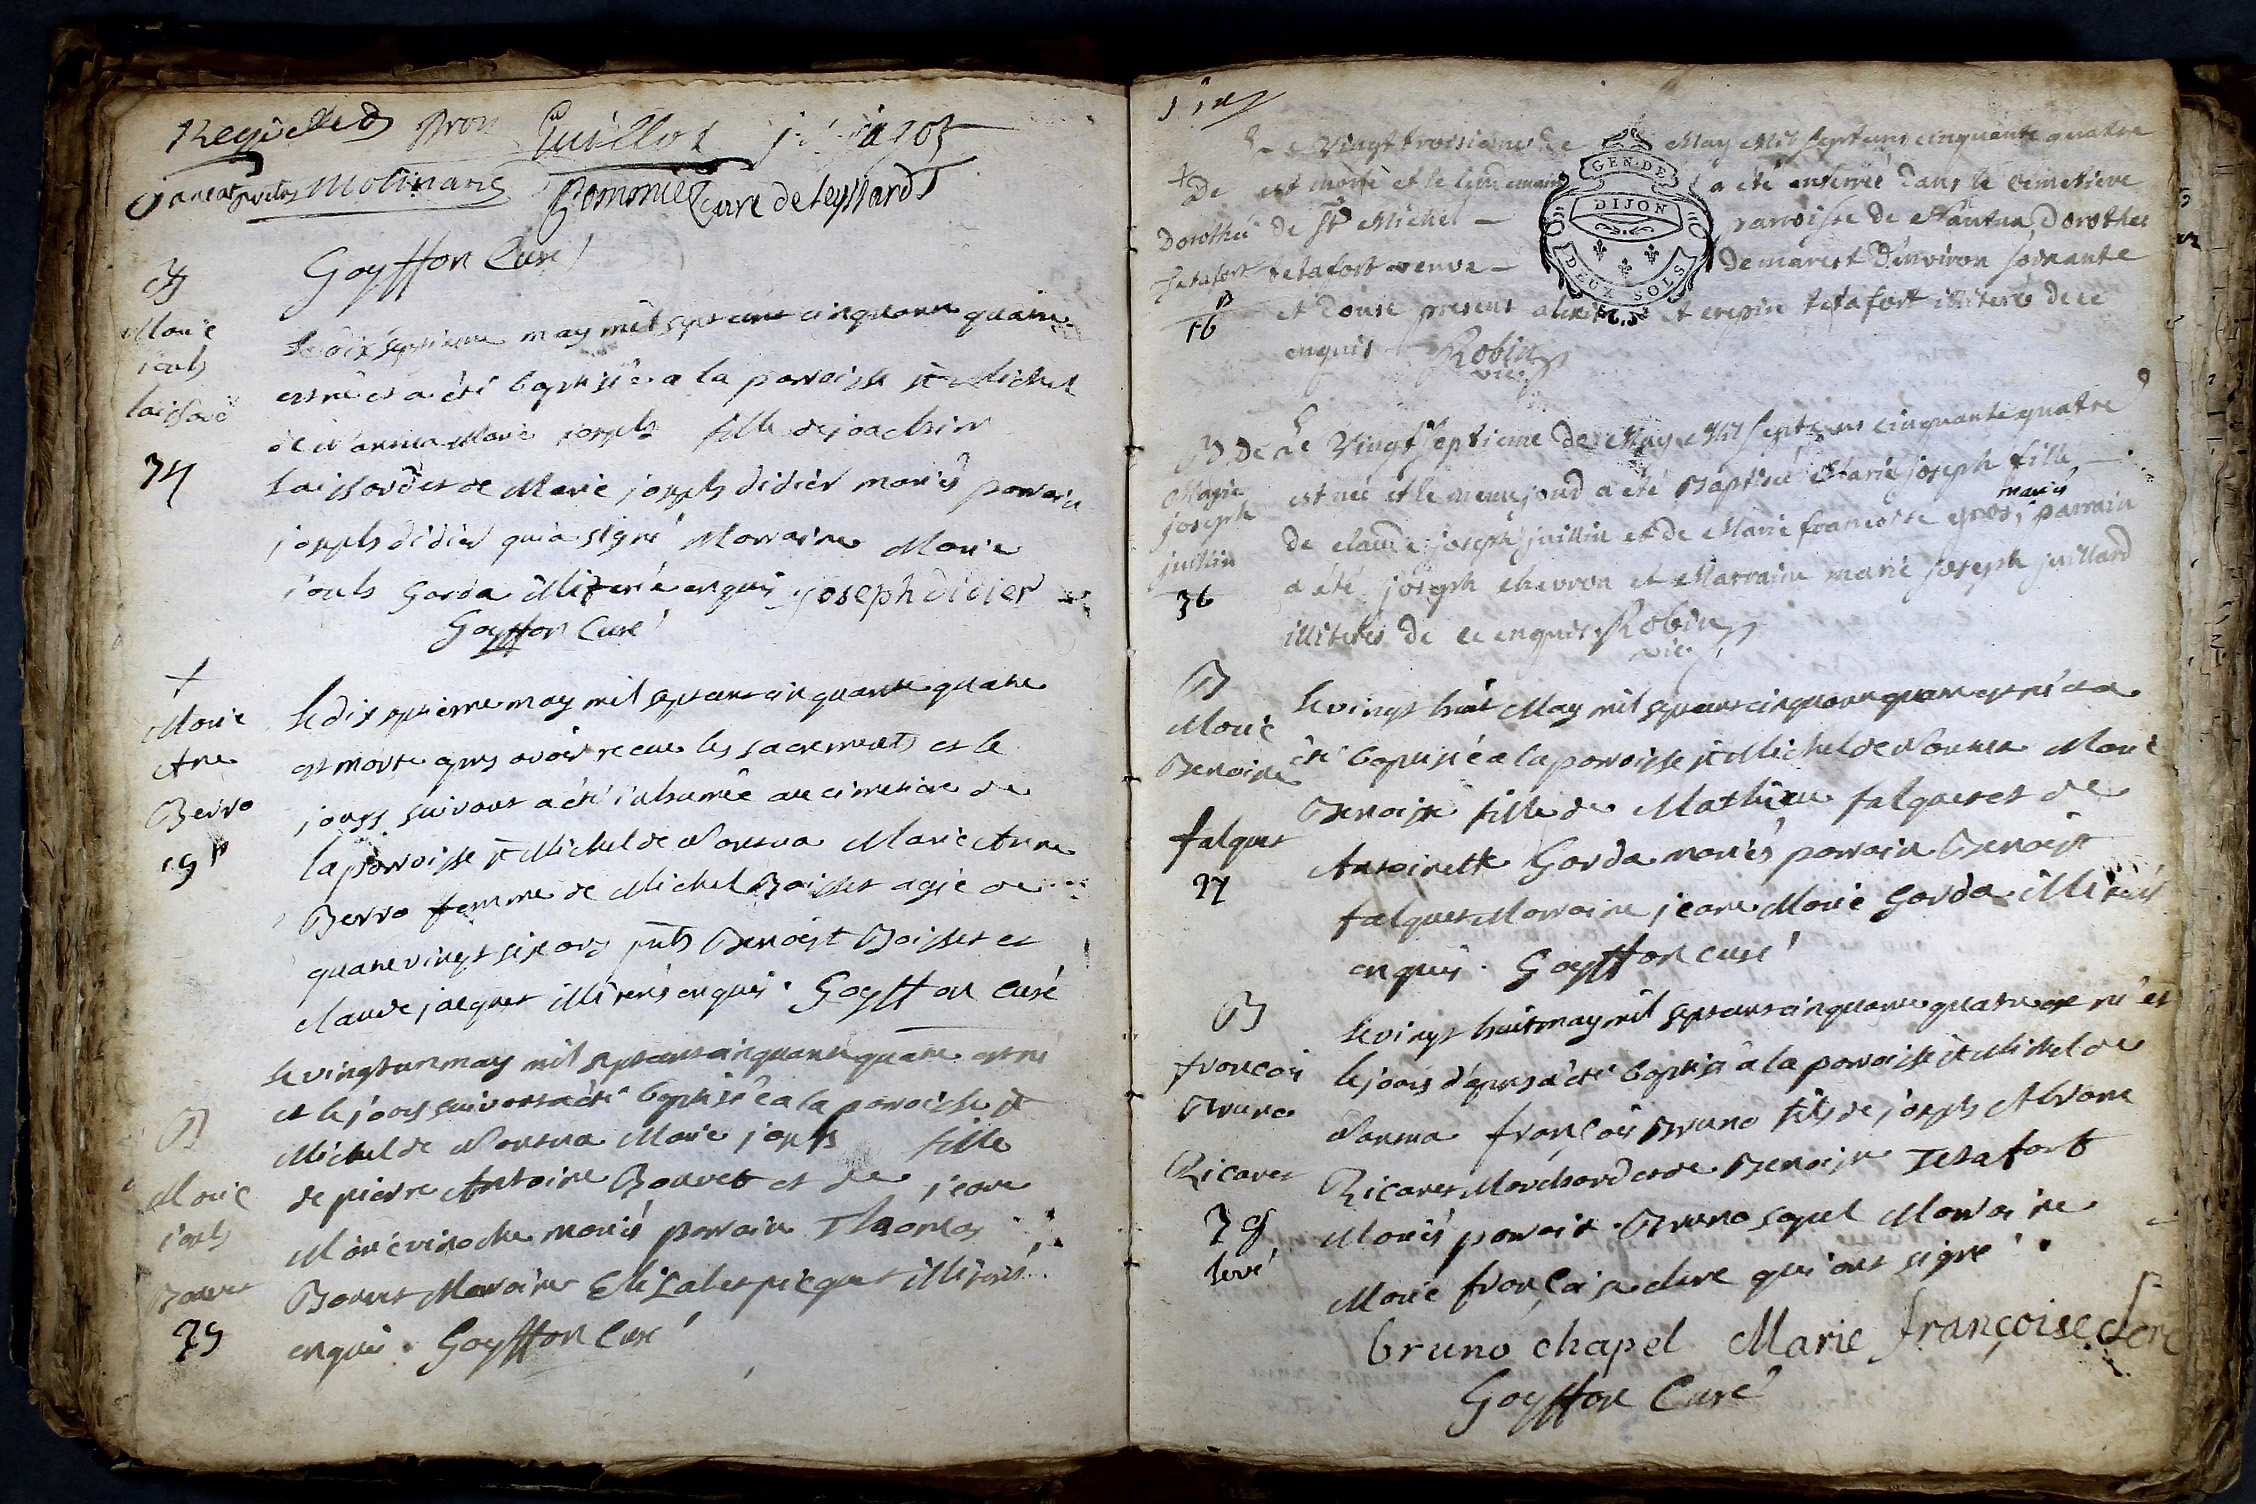 Guillot
Molinard Pommiez curé de Leyssard
Goyffon Curé
B
Marie
joseph
34
Le dix septieme may mil sept cent cinquante quatre
est né et a été baptisée a la parroisse st Michel
de Nantua Marie joseph fille de joachim
et de Marie joseph didier mariés parrain
joseph didier qui a signé Marraine Marie
joseph Garda illiterée enquis joseph didier
Goyffon Curé
+
Marie
Ane
Berro
Le dix septieme may mil sept cent cinquante quatre
est morte apres avoir receue les sacrements et le
jour suivant a été inhumée au cimetiere de
la parroisse st Michel de Nantua Marie Anne
Berro femme de Michel Boisset agée de
quatrevingt six ans pnts Benoist Boisset et
Claude jacquet illiterés enquis. Goyffon Curé
B
Marie
joseph
Bouvet
35
Le vingt un may mil sept cent cinquante quatre est né
et le jour suivant a été baptisée a la parroisse st
Michel de Nantua Marie joseph fille
de pierre Antoine Bouvet et de jeane
Marie mariés parrain Thomas
Bouvet Marraine Elizabet picquet illiterés
enquis. Goyffon Curé
GEN. DE
DIJON
DEUX SOLS
+
De
Dorothée
Tetafort
16
Le Vingt troisieme de May Mil sept cens cinquante quatre
est morte et le lendemain a été enterrée dans le Cimetiere
de St Michel - parroisse de Nantua Dorothée
tetafort veuve - demarest d'environ soixante
et douse presens et crepin tetafort illiterés de ce
enquis Robin
vic.
B. De
Marie
joseph
juillin
36
Le Vingt septieme de May Mil sept cens cinquante quatre
est née et le meme jour a été Baptisée Marie joseph fille
de claude joseph juillin et de Marie francoise mariés, parrain
a été joseph chevron et Marraine marie joseph juillard
illiterés de ce enquis Robin
vic.
B
Marie
Benoite
falquet
37
Le vingt huit May mil sept cent cinquante quatre est née et a
été baptisée a la parroisse st Michel de Nantua Marie
Benoite fille de Mathieu falquet et de
Antoinette Garda mariés parrain Benoist
falquet Marraine jeane Marie Garda illiterés
enquis. Goyffon curé
B
françois
Bruno
Ricaret
38
Le vingt huit may mil sept cent cinquante quatre est né et
le jour d'apres a été baptisé a la parroisse st Michel de
Nantua françois Bruno fils de joseph
Ricaret Marchand et de Benoite Tetafort
Mariés parrain Bruno Marraine
Marie françoise clerc qui ont signé.
bruno chapel Marie françoise clerc
Goyffon Curé